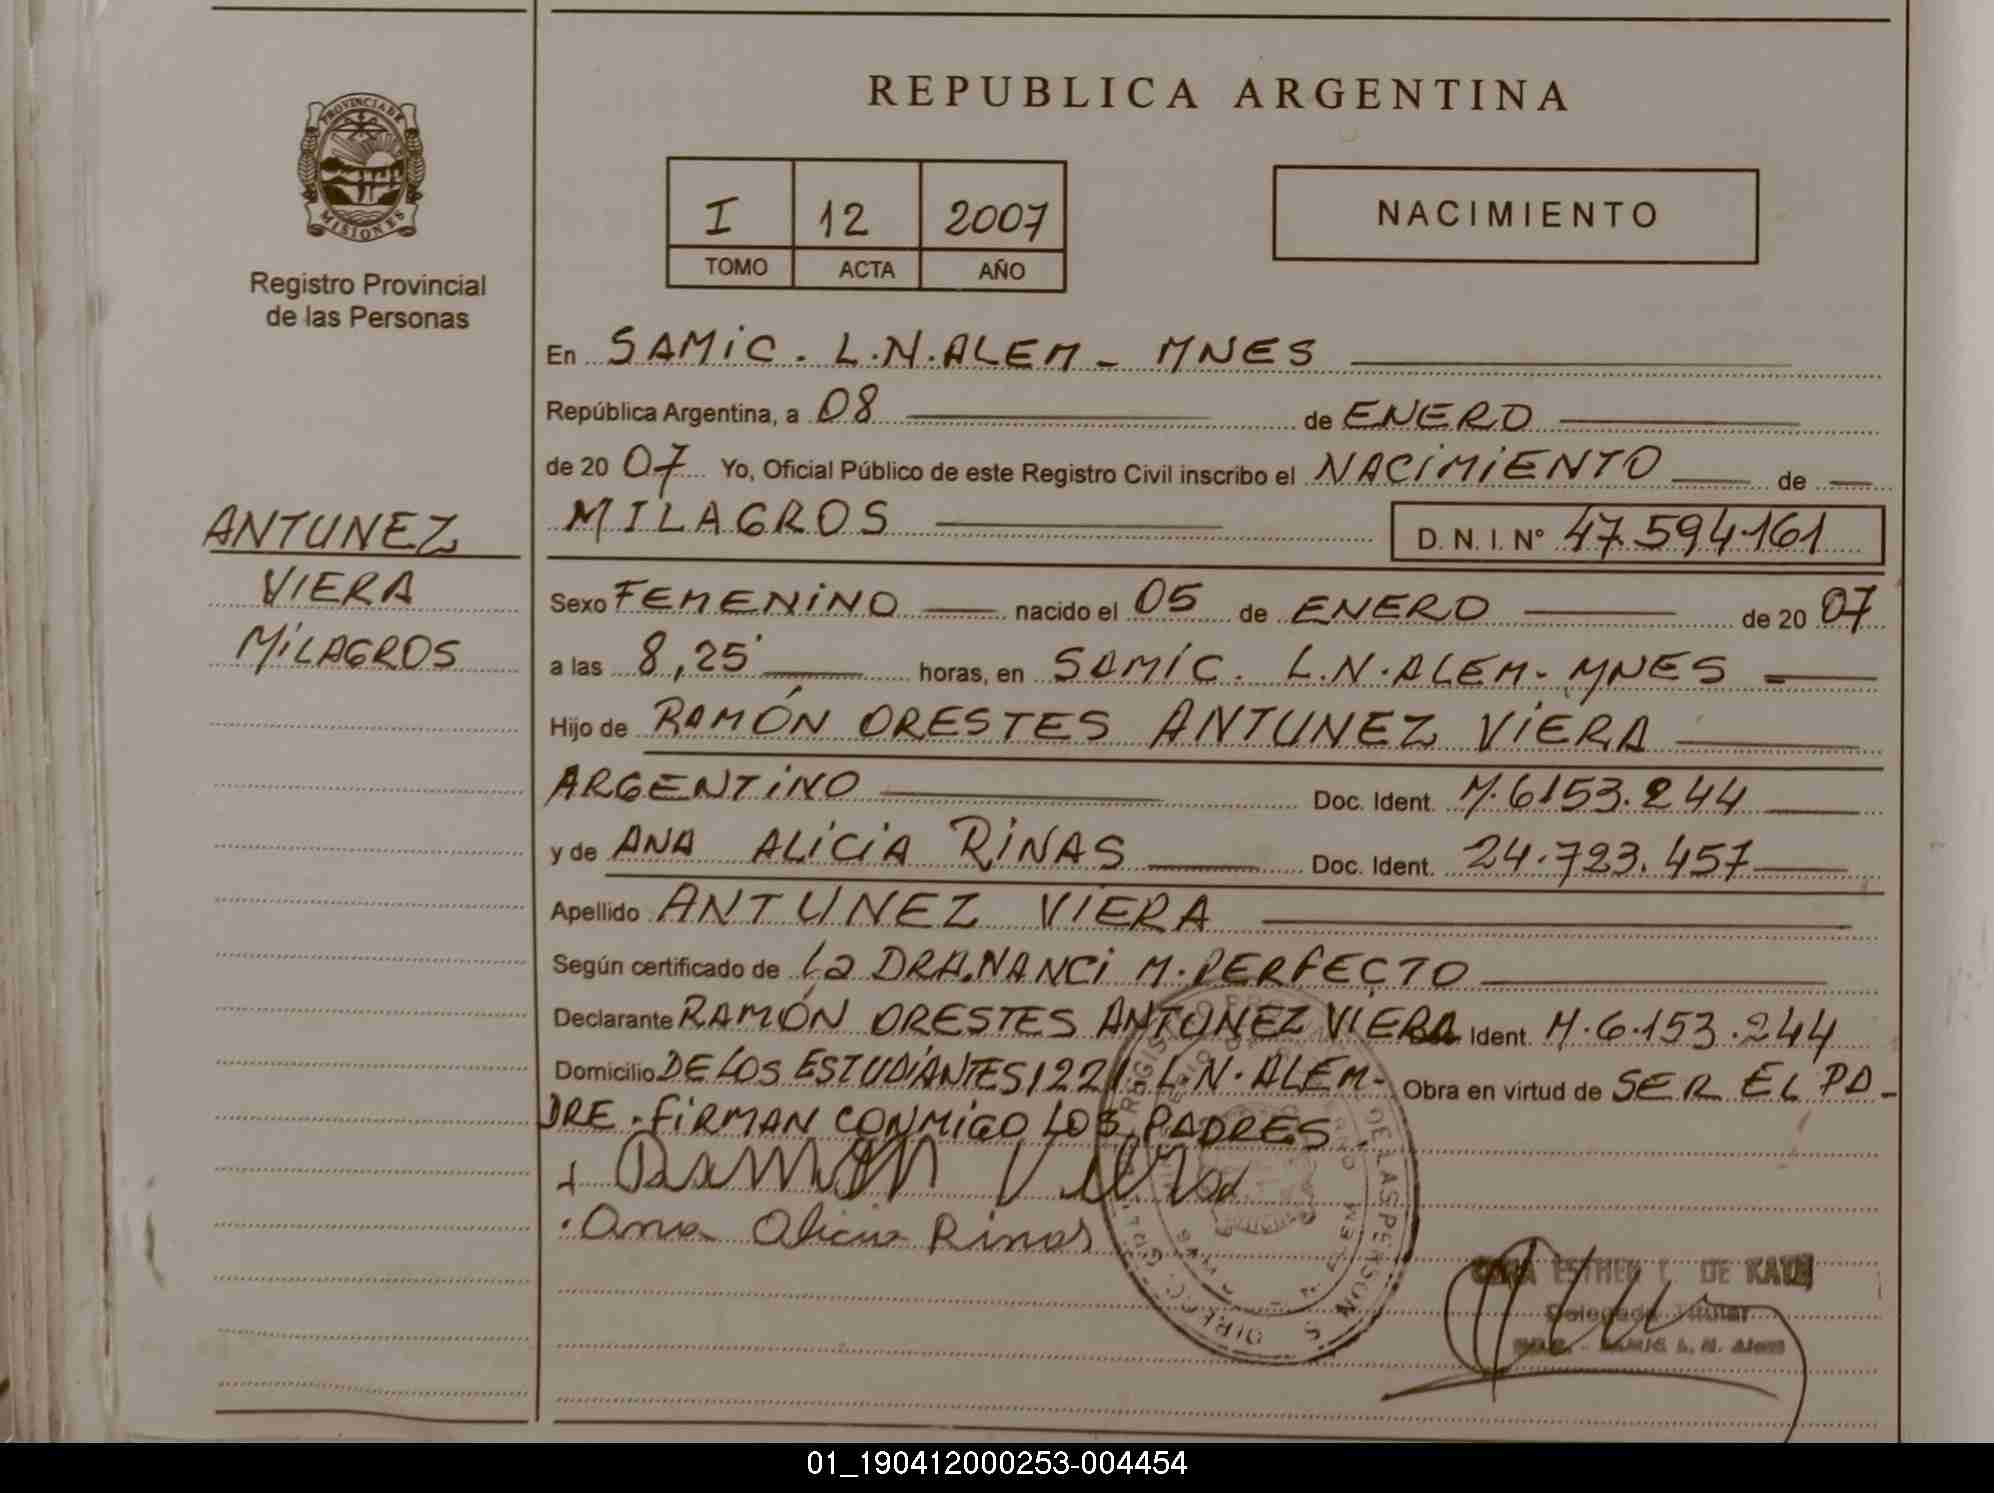 REPUBLICA ARGENTINA
PROVINCIA DE
MISIONES
Registro Provincial
de las Personas
I 12 2007
TOMO ACTA AÑO
NACIMIENTO
En SAMIC. L.N.ALEM - MNES
República Argentina, a 08 de ENERO
de 20 07 Yo, Oficial Público de este Registro Civil inscribo el NACIMIENTO de
MILAGROS D. N. I. N° 47.594.161
ANTUNEZ
VIERA
MILAGROS
Sexo FEMENINO nacido el 05 de ENERO de 20 07
a las 8,25' horas, en SAMIC. L.N.ALEM - MNES
Hijo de RAMÓN ORESTES ANTUNEZ VIERA
ARGENTINO Doc. Ident. M.6153.244
y de ANA ALICIA RINAS Doc. Ident. 24.723.457
Apellido ANTUNEZ VIERA
Según certificado de La DRA.NANCI M. PERFECTO
Declarante RAMÓN ORESTES ANTUNEZ VIERA Ident. M.6.153.244
Domicilio DE LOS ESTUDIANTES 1221 L.N.ALEM- Obra en virtud de SER EL PA-
DRE. FIRMAN CONMIGO LOS PADRES.
Ramon Viera
Ana Alicia Rinas
ESTHER DE
Delegada Titular
SAMIC L. N. Alem
01_190412000253-004454